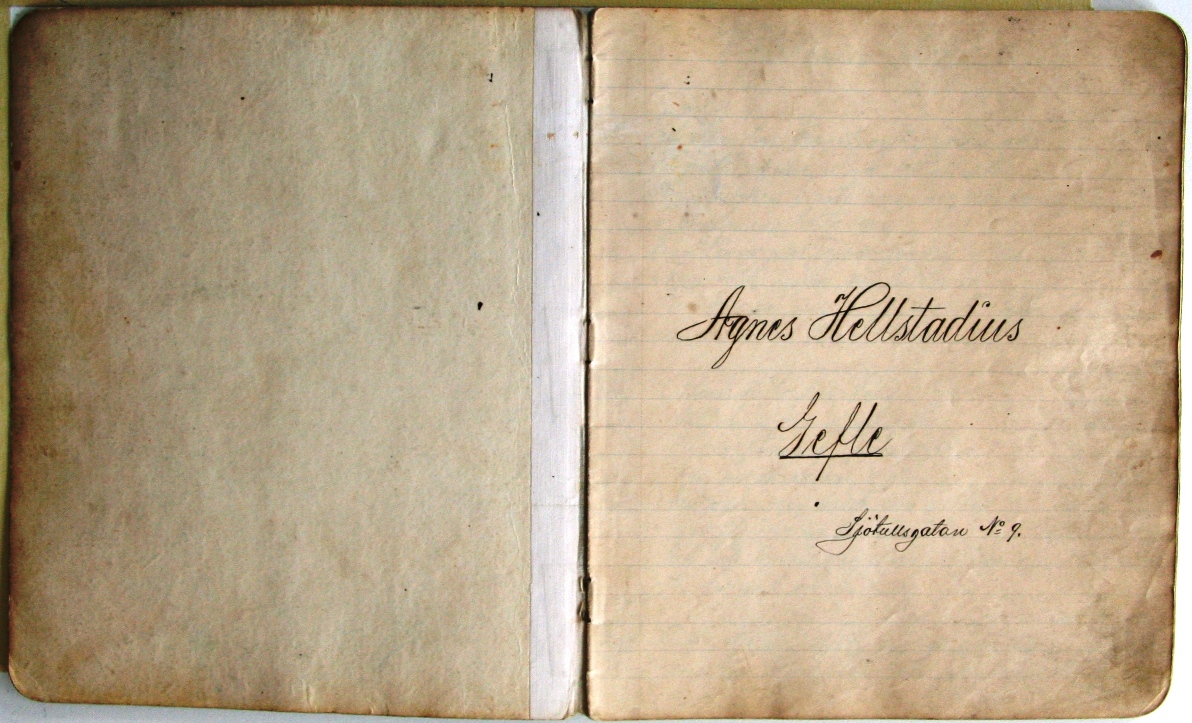 Agnes Hellstadius
Gefle
Sjötullsgatan No 9.